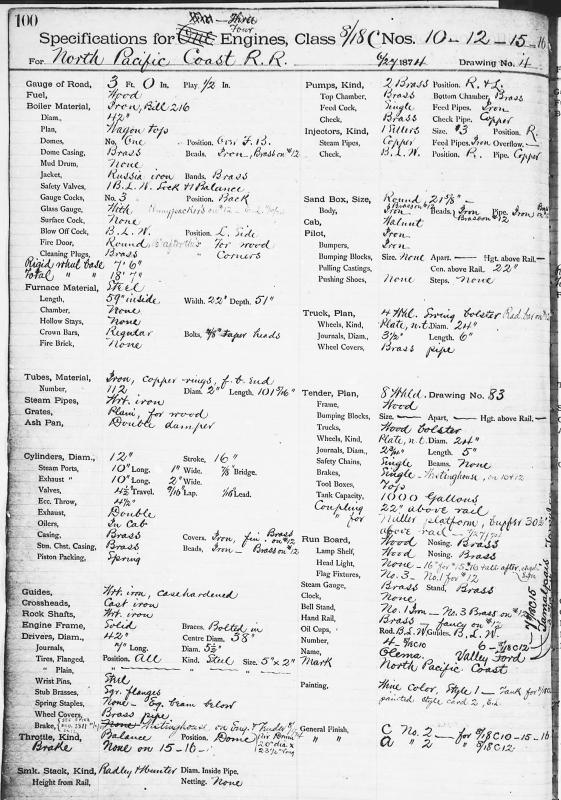 100
Three
Four
Specifications for One Engines, Class 8/18 C Nos. 10-12-15-16
For North Pacific Coast R.R. 6/27 1874 Drawing No. 4
Gauge of Road, 3 Ft. 0 In. Play 1/2 In.
Fuel, Wood
Boiler Material, Iron, Bill 216
Diam., 42"
Plan, Wagon top
Domes, No. One Position. Over F.B.
Dome Casing, Brass Beads, Iron, Brass on #12
Mud Drum, None
Jacket, Russia iron Bands. Brass
Safety Valves, 1 B.L.W. Lock & 1 Balance
Gauge Cocks, No. 3 Position, Back
Glass Gauge, With
Surface Cock, None
Blow Off Cock, B.L.W. Position, L. Side
Fire Door, Round for wood
Cleaning Plugs, Brass " Corners
Rigid wheel base 7' 6"
Total " " 18' 7"
Furnace Material, Steel
Length, 59" inside Width. 22" Depth. 51"
Chamber, None
Hollow Stays, None
Crown Bars, Regular Bolts, 7/8" taper heads
Fire Brick, None
Tubes, Material, Iron, copper rings, f.b. end
Number, 112 Diam. 2" Length, 101 7/16"
Steam Pipes, Wrt. iron
Grates, Plain, for wood
Ash Pan, Double damper
Cylinders, Diam., 12" Stroke, 16"
Steam Ports, 10" Long. 1" Wide. 7/8" Bridge.
Exhaust " 10" Long. 2" Wide.
Valves, 4 1/2 Travel. 9/16" Lap. 1/16 Lead.
Ecc. Throw, 4 1/2"
Exhaust, Double
Oilers, In Cab
Casing, Brass Covers. Iron, fin. Brass on #12
Stm. Chst. Casing, Brass Beads, Iron - Brass on #12
Piston Packing, Spring
Guides, Wrt. iron, casehardened
Crossheads, Cast iron
Rock Shafts, Wrt. iron
Engine Frame, Solid Braces. Bolted in
Drivers, Diam., 42" Centre Diam. 38"
Journals, " Long Diam. 5 1/2"
Tires, Flanged, Position. All Kind. Steel Size. 5" x 2"
" Plain, " " "
Wrist Pins, Steel
Stub Brasses, Sqr. flanges
Spring Staples, None - Eq. beam below
Wheel Covers, Brass pipe
Brake, None Westinghouse on Eng. & Tender
Throttle, Kind, Balance Position. Dome
Brake None on 15-16
Smk. Stack, Kind, Radley & Hunter Diam. Inside Pipe,
Height from Rail, Netting. None
Pumps, Kind, 2 Brass Position. R. & L.
Top Chamber, Brass Bottom Chamber, Brass
Feed Cock, Single Feed Pipes. Iron
Check, Brass Check Pipe, Copper
Injectors, Kind, 1 Sellers Size. #3 Position, R.
Steam Pipes, Copper Feed Pipes. Iron Overflow.
Check, B.L.W. Position. R. Pipe, Copper
Sand Box, Size, Round 21 5/8"
Body, Iron Brass on #12 Beads, Iron Brass on #12 Pipe. Iron
Cab, Walnut
Pilot, Iron
Bumpers, Iron
Bumping Blocks, Size. None Apart. — Hgt. above Rail. —
Pulling Castings, Cen. above Rail. 22"
Pushing Shoes, None Steps. None
Truck, Plan, 4 Whl. Swing bolster
Wheels, Kind, Plate, n.t. Diam. 24"
Journals, Diam., 3 1/2" Length. 6"
Wheel Covers, Brass pipe
Tender, Plan, 8 Whld. Drawing No. 83
Frame, Wood
Bumping Blocks, Size. — Apart, — Hgt. above Rail, —
Trucks, Wood bolster
Wheels, Kind, Plate, n.t. Diam. 24"
Journals, Diam., Length. 5"
Safety Chains, Single Beams. None
Brakes, Single Westinghouse, on 10 & 12
Tool Boxes, Tops
Tank Capacity, 1000 Gallons
Coupling 22" above rail
" for Miller platform, buffer 30 1/2" above rail
Run Board, Wood Nosing. Brass
Lamp Shelf, Wood Nosing. Brass
Head Light, None
Flag Fixtures, No. 3 - No. 1 for #12
Steam Gauge, Brass Stand, Brass
Clock, None
Bell Stand, No. 1 Iron - No. 3 Brass on #12
Hand Rail, Brass - fancy on #12
Oil Cups, Rod. B.L.W. Guides. B.L.W.
Number, 4 8/18C10 6 - 8/18C12
Name, Olema Valley Ford
Mark North Pacific Coast
Painting, Wine color, Style 1
General Finish, C No. 2 — for 8/18C10-15-16
" " A " 2 " 8/18C12